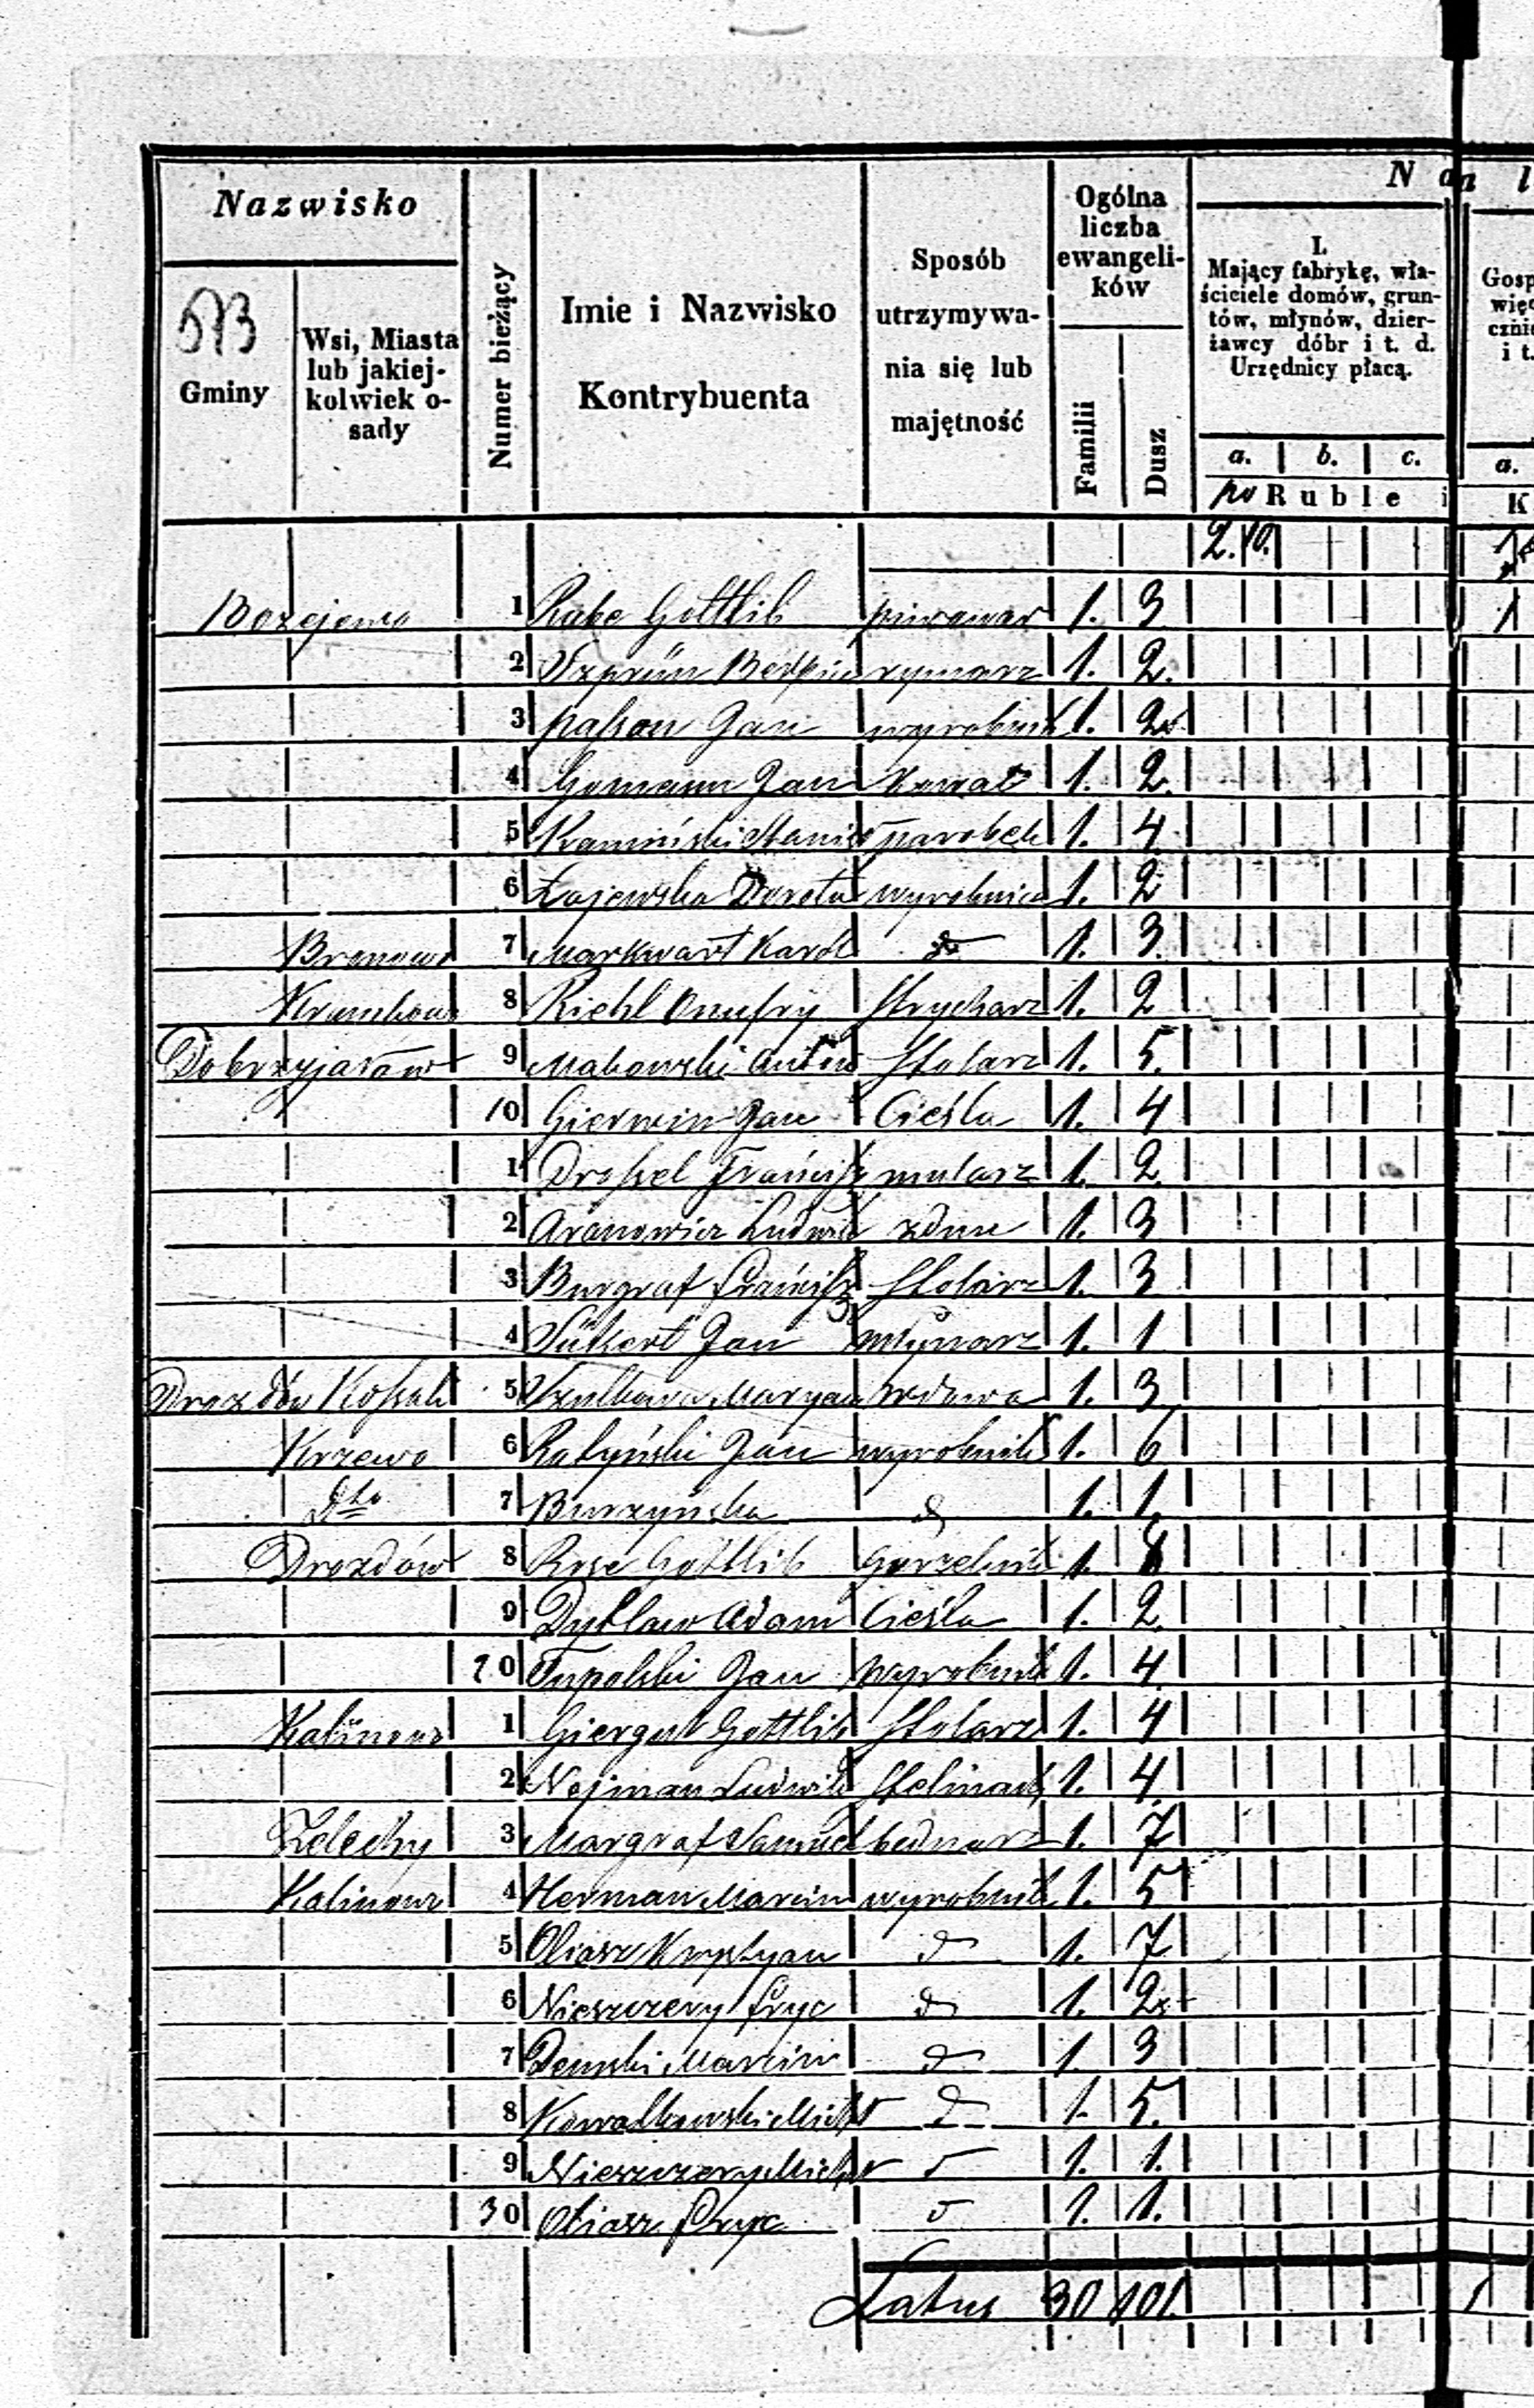 Nazwisko
Gminy
Wsi, Miasta
lub jakiej-
kolwiek o-
sady
Numer bieżący
Imie i Nazwisko
Kontrybuenta
Sposób
utrzymywa-
nia się lub
majętność
Ogólna
liczba
ewangeli-
ków
Familii
Dusz
N a
I.
Mający fabrykę, wła-
ściciele domów, grun-
tów, młynów, dzier-
żawcy dóbr i t. d.
Urzędnicy płacą.
a. b. c.
po Ruble i
a l
Gosp
więc
cznie
i t.
a.
K
2.10.
Bożejewo 1 Rabe Gottlib piwowar 1. 3 1
2 Szprün rymarz 1. 2.
3 Jan wyrobnik 1. 2
4 Homann Jan Kowal 1. 2.
5 Kamiński Stanis parobek 1. 4
6 Zajewska Dorota wyrobnica 1. 2
Bronowo 7 Markwart Karol do 1. 3.
8 Riehl Onufry Strycharz 1. 2
Dobrzyjałów 9 Makowski Antoni Stolarz 1. 5.
10 Gierwin Jan Cieśla 1. 4
1 Drossel Francisz mularz 1. 2.
2 Aronowicz Ludwik zdun 1. 3
3 Burgraf Francisz Stolarz 1. 3
4 Jan młynarz 1. 1
Drozdów Kossaki 5 Szulcowa Maryan wdowa 1. 3
Krzewo 6 Ratyński Jan wyrobnik 1. 6
Dto 7 Burzyńska d 1. 1.
Drozdów 8 Rose Gottlib Gorzelnik 1. 8
9 Dytlaw Adam Cieśla 1. 2.
20 Typolski Jan Wyrobnik 1. 4
Kalinowo 1 Giergut Gottlib Stolarz 1. 4
2 Nejman Ludwik Stelmach 1. 4.
Żelechy 3 Margraf Samuel bednarz 1. 7
Kalinowo 4 Herman Marcin wyrobnik 1. 5
5 Oliasz Krystyan d 1. 7
6 Nieszczery Fryc d 1. 2
7 Demski Marcin d 1. 3
8 Kowalkowski Mich d 1. 5.
9 Nieszczery Mich d 1. 1.
30 Oliasz Fryc d 1. 1.
Latus 30 101.